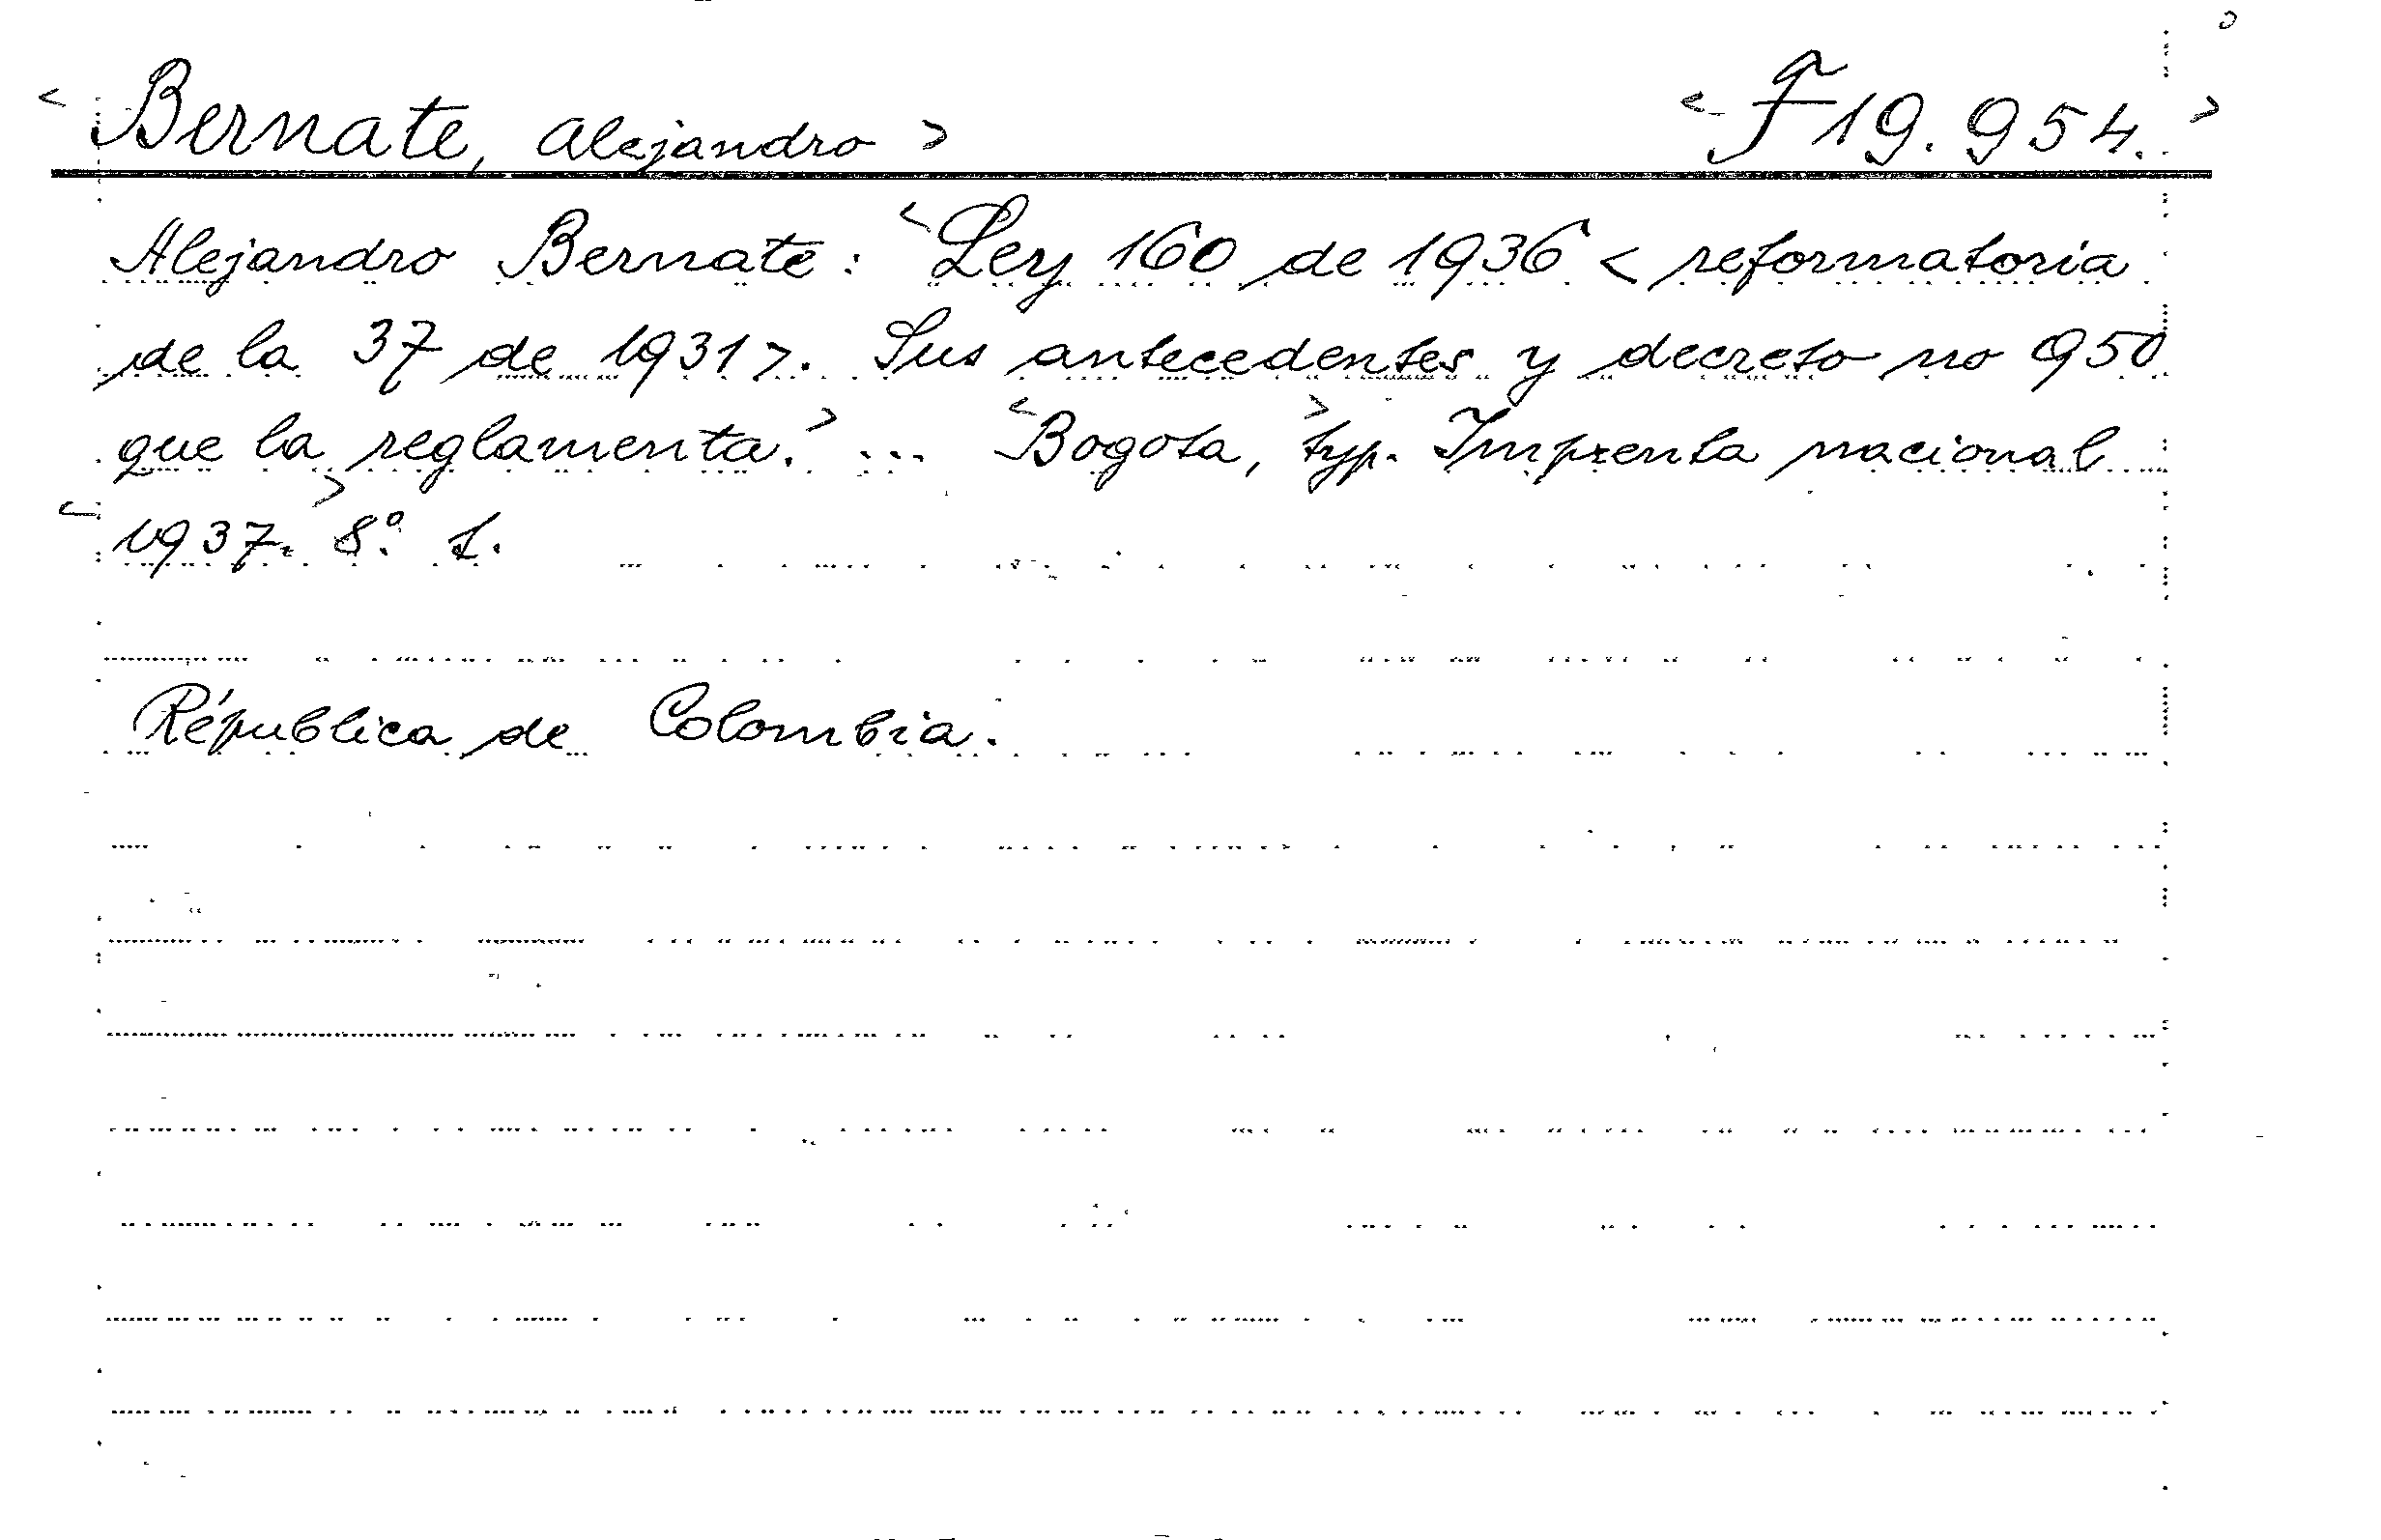 < Bernate, Alejandro > < F 19.954. >
Alejandro Bernate : < Ley 160 de 1936 < reformatoria
de la 37 de 1931 >. Sus antecedentes y decreto no 950
que la reglamenta. > ... < Bogota, > typ. Imprenta nacional
< 1937. > 8º. 1.
Républica de Colombia.